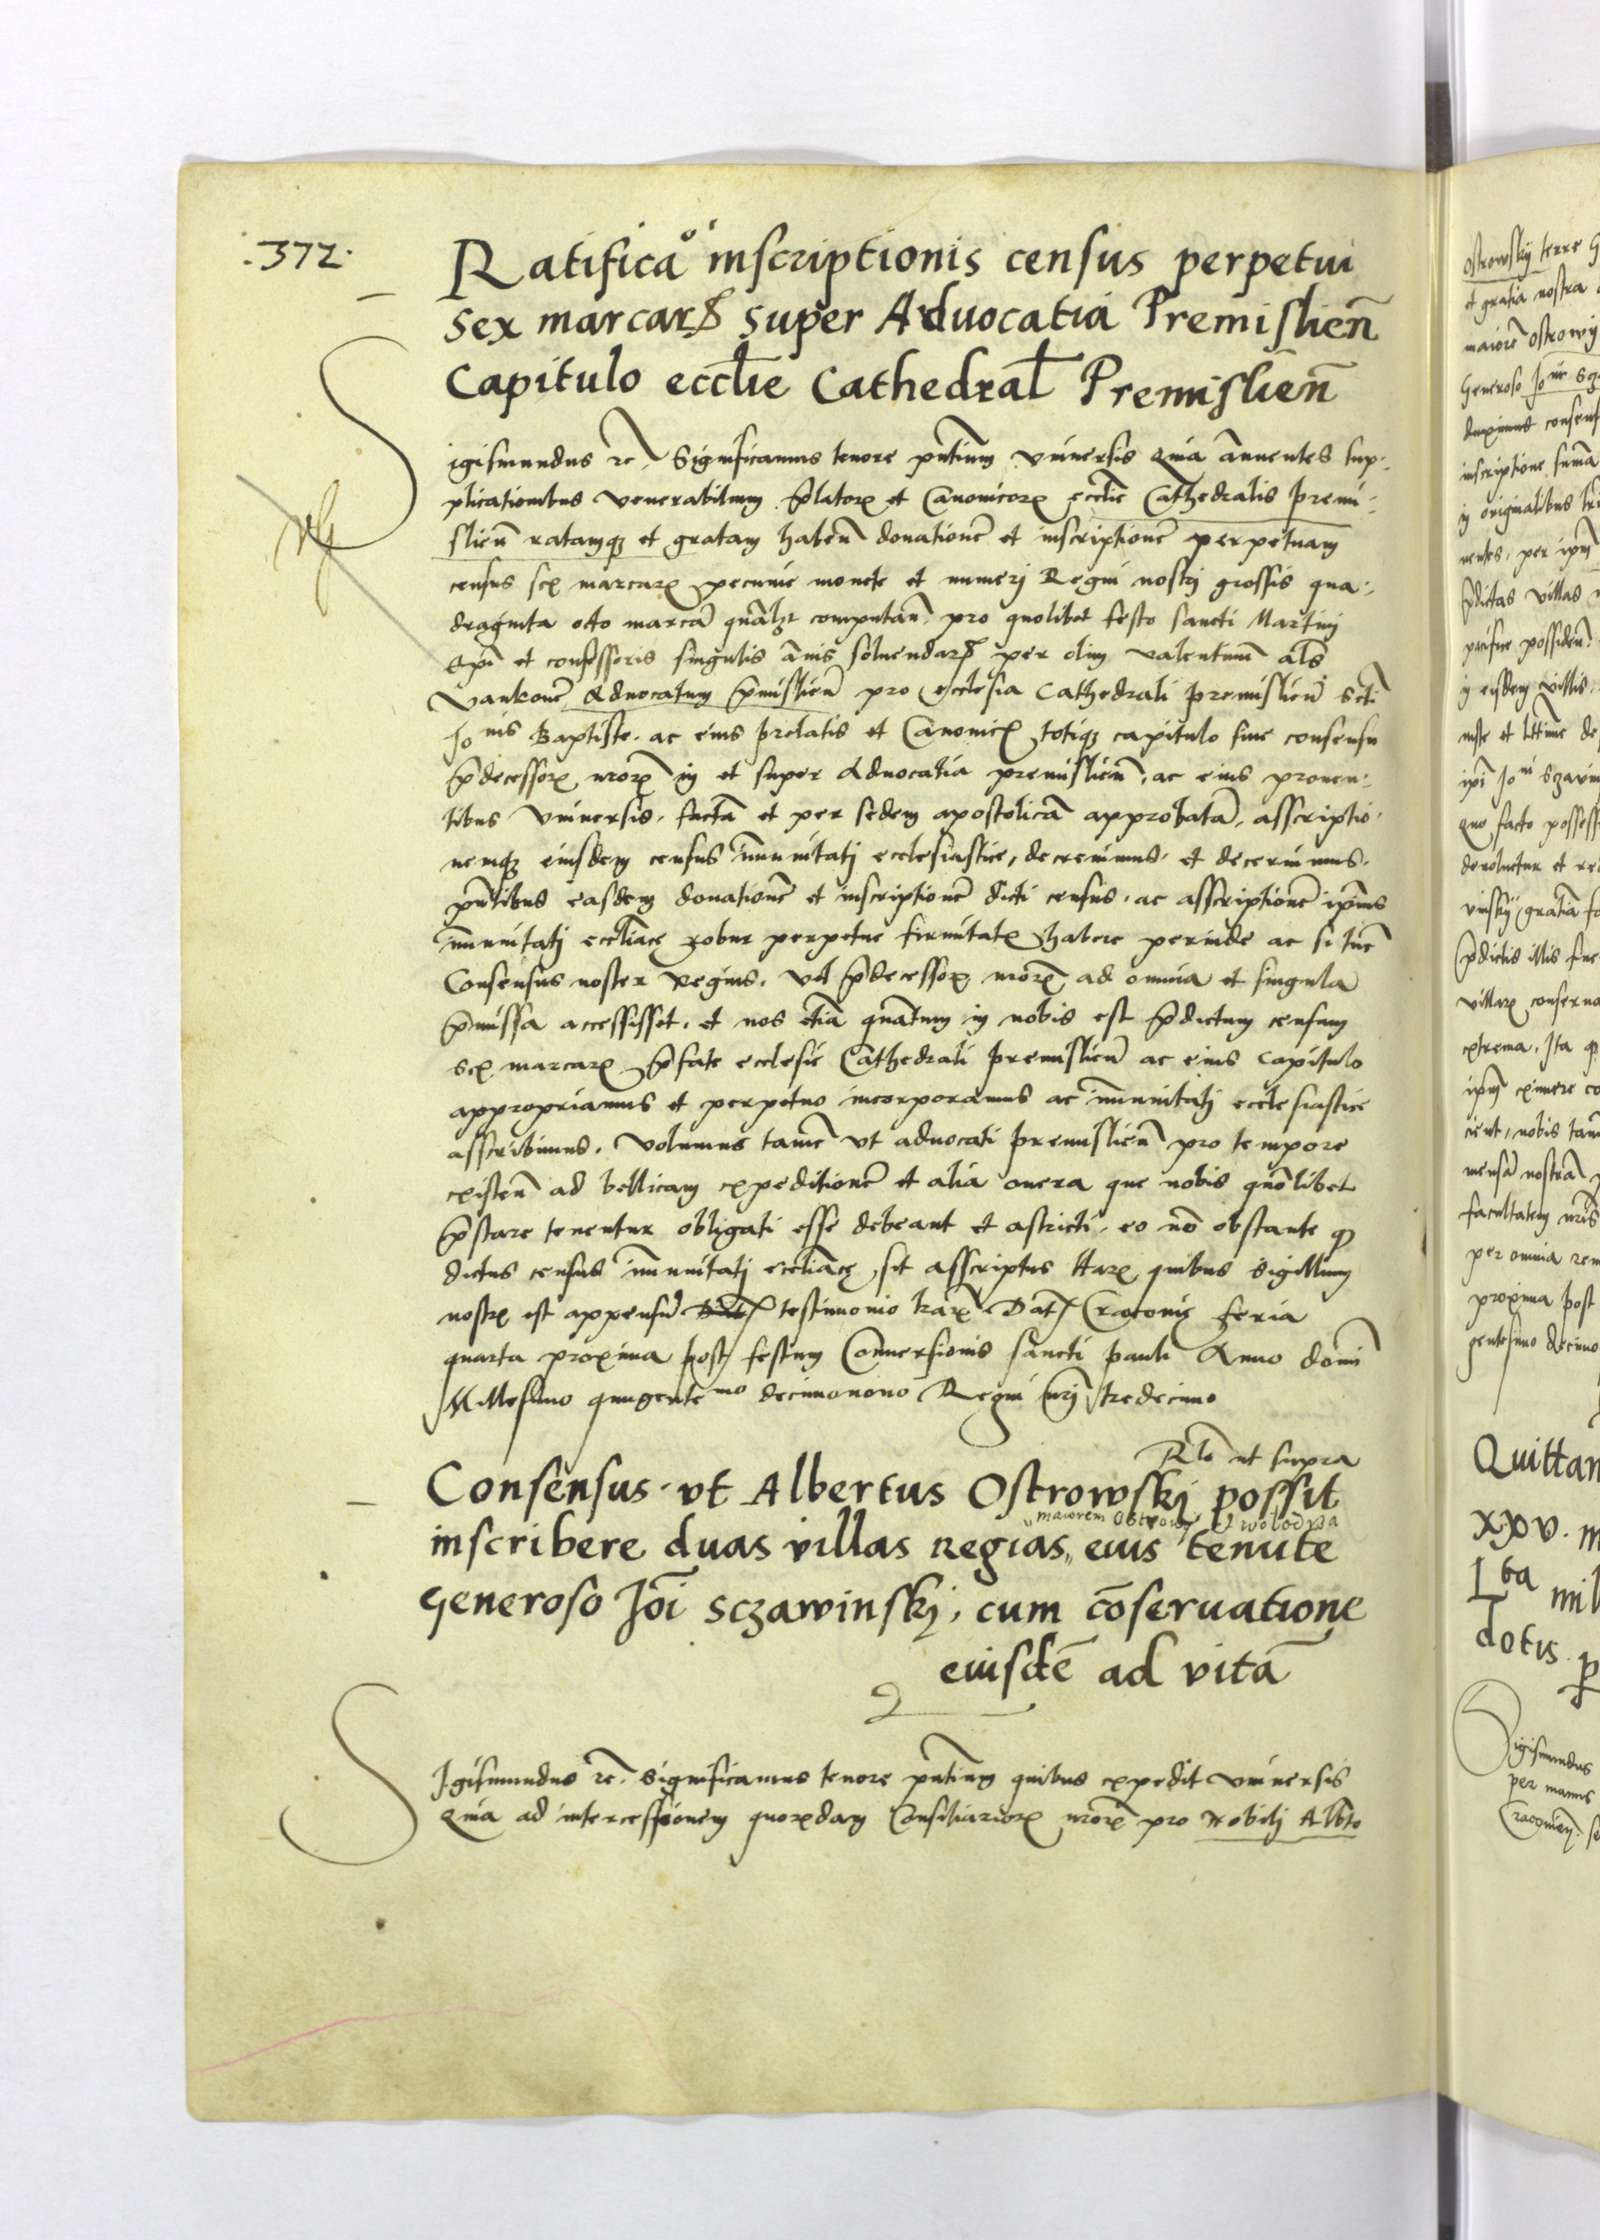 .372.
Ratificao͛ inscriptionis census perpetui
sex marcarꝝ super Aduocatia Premislien̄
Capitulo eccl̄ie Cathedral̄ Premislien̄
Sigismundus ꝛc̄. Significamus tenore pn̄tium vniuersis Quia annuentes sup-
plicationibus venerabilium p̄latorꝝ et Canonicorꝝ eccl̄ie Cathedralis premi-
slien̄ ratamqꝫ et gratam haben̄ donationē et inscriptionē perpetuam
census sex marcarꝝ pecunie monete et numerj Regni nostrj grossis qua-
draginta octo marcā quāl̄t computan̄. pro quolibet festo sancti Martinj
Ep̄i et confessoris singulis ānis soluendarꝝ per olim valentinū al̄s
Vankonē Aduocatum p̄mislien̄ pro ecclesia Cathedrali premislien̄ Scti
Jo nis Baptiste. ac eius prelatis et Canonicꝭ totiqꝫ capitulo siue consensu
p̄decessorꝝ nrorꝝ in et super Aduocatia premislien̄, ac eius prouen-
tibus vniuersis. factā et per sedem apostolicā approbatā, asscriptio-
nemqꝫ eiusdem census īmunitatj ecclesiastice, decreuimus. et decernimus.
pn̄tibus easdem donationē et inscriptionē dicti census. ac asscriptionē ip̄ius
īmunitatj eccl̄iacę robur perpetue firmitatꝭ habere perinde ac si tūc
Consensus noster regius. vel p̄decessorꝝ nrorꝝ ad omnia et singula
p̄missa accessisset. et nos etiā quātum in nobis est p̄dictum censum
sex marcarꝝ p̄fate ecclesie Cathedrali premislien̄ ac eius capitulo
appropriamus et perpetuo incorporamus ac īmunitatj ecclesiastice
asscribimus. Volumus tamē vt aduocati premislien̄ pro tempore
existen̄ ad bellicam expeditionē et alia onera que nobis quōlibet
p̄stare tenentur obligati esse debeant et astricti. eo nō obstante ꝙ
dictus census īmunitatj eccl̄iacę sit asscriptus ltt̄arꝝ quibus sigillum
nostrꝝ est appensū testimonio l̄rarꝝ Datꝭ Cracouię feria
quarta proxima post festum Conuersionis sancti pauli Anno domi
Millesimo quingente mo decimonono Regni nr̄j tredecimo
Rl̄o ut supra
Consensus. vt Albertus Ostrowskj possit
maiorem Ostrowy et wolodya
inscribere duas villas regias, eius tenute
Generoso Jōi sczawinskj, cum cōseruatione
eiusdē ad vitā
SJgismundus ꝛc̄. Significamus tenore pn̄tium quibus expedit vniuersis
Quia ad intercessionem quorꝝdam Consiliariorꝝ nrorꝝ pro Nobilj Alb̄to